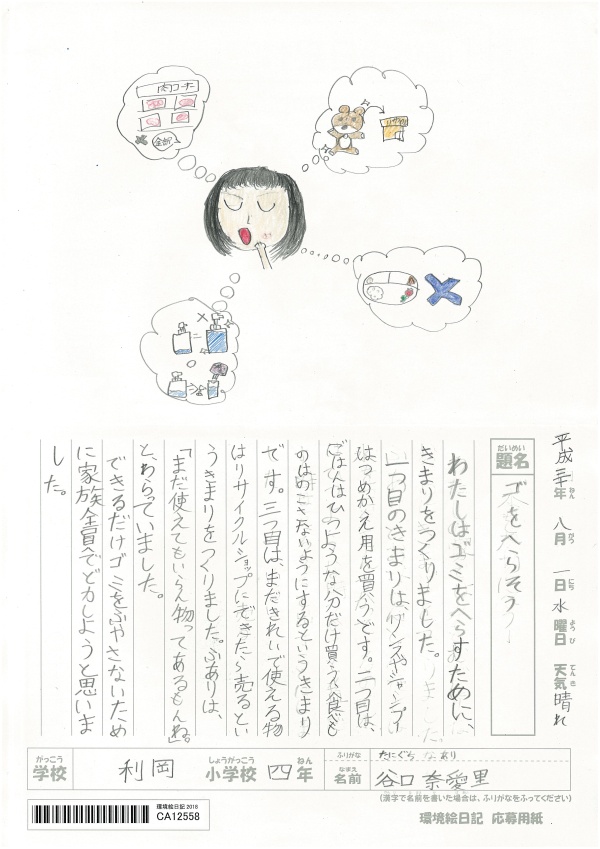 肉コーナー
全部?
リサイクル
平成三十年 八月 一日 水曜日 天気 晴れ
ねん がつ にち ようび てんき
だいめい
題名
ゴミをへらそう
わたしはゴミをへらすために、
きまりをつくりました。
一つ目のきまりは、リンスやシャンプー
はつめかえ用を買うです。二つ目は、
ごはんはひつような分だけ買う、食べも
のはのこさないようにするというきまり
です。三つ目は、まだきれいで使える物
はリサイクルショップにできたら売るとい
うきまりをつくりました。
「まだ使えてもいらん物ってあるもんね。」
と、わらっていました。
できるだけゴミをふやさないため
に家族全員でどカしようと思いま
した。
がっこう しょうがっこう ねん
学校 利岡 小学校 四年
ふりがな たにぐち なあり
なまえ
名前 谷口 奈愛里
(漢字で名前を書いた場合は、ふりがなをふってください)
環境絵日記2018
CA12558
環境絵日記 応募用紙